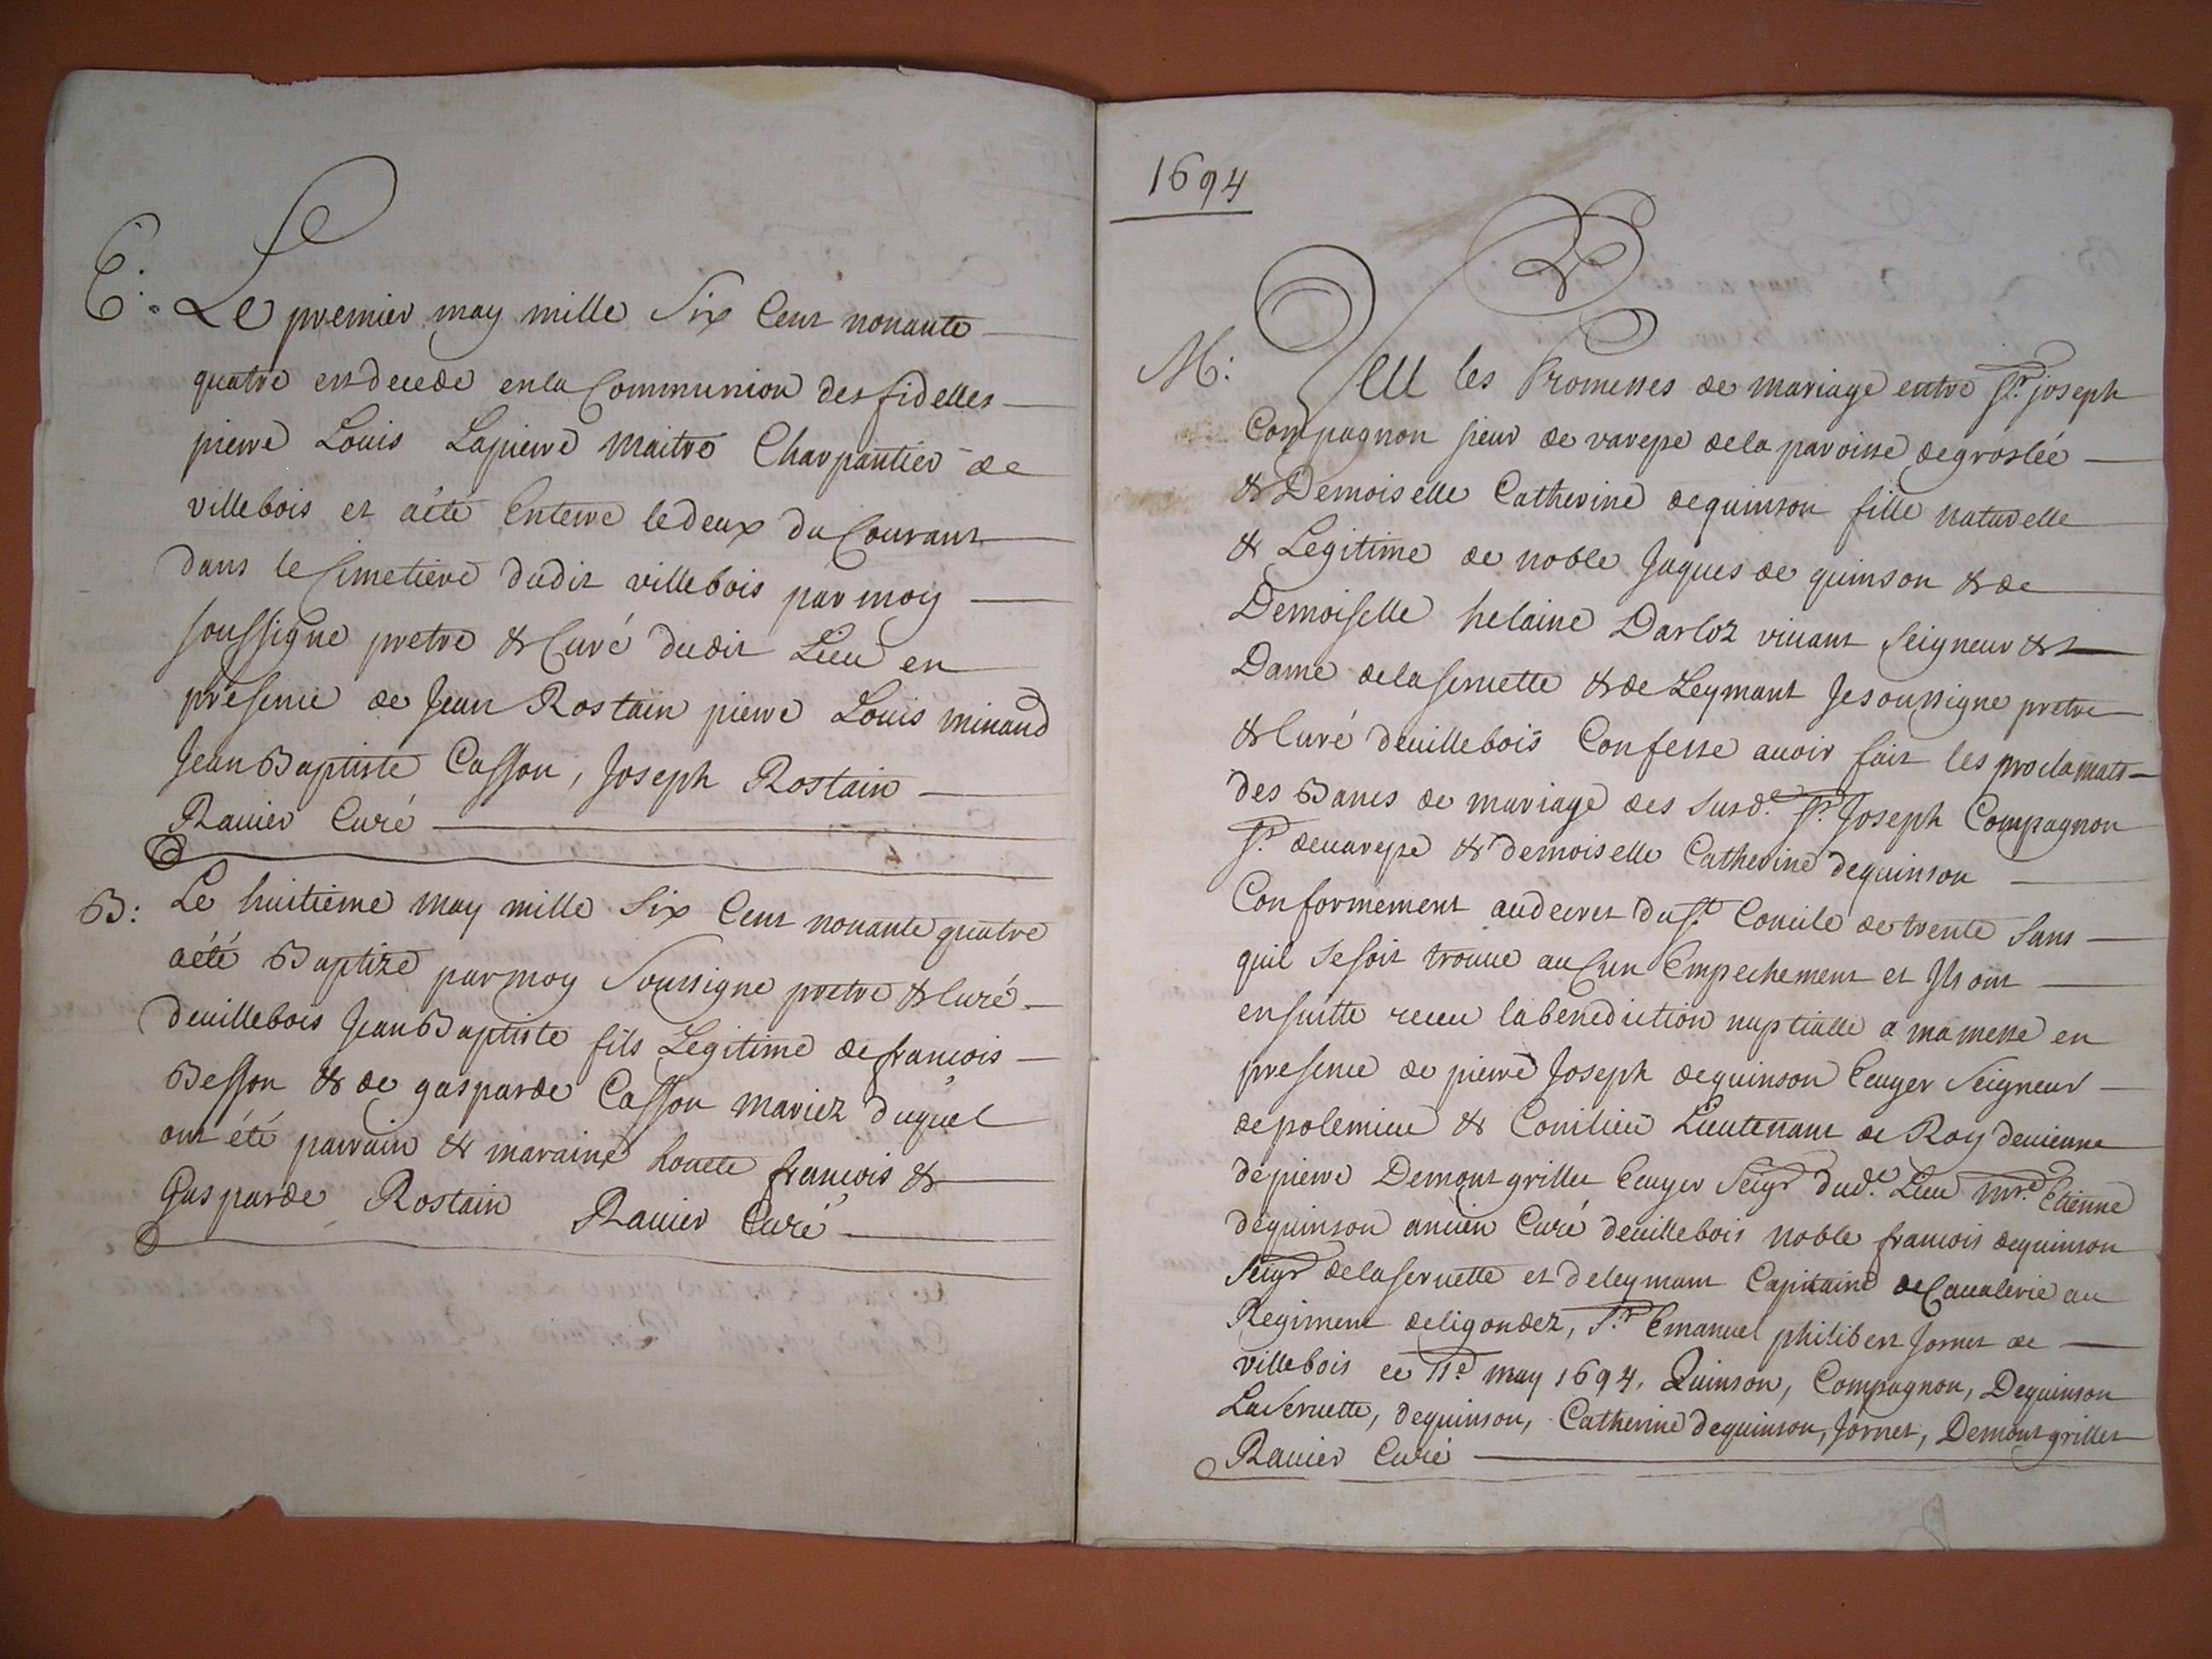 E:
Le premier may mille Six Cent nonante
quatre est decede en la Communion des fidelles
pierre Louis Lapierre maitre Charpantier de
villebois et aété Enterre le deux du Courant
dans le Cimetiere dudit villebois par moy
soussigne pretre & Curé dudit Lieu en
presence de Jean Rostain pierre Louis minand
Jean Baptiste Casson, Joseph Rostain
Ravier Curé
B: Le huitieme may mille Six Cent nonante quatre
aété Baptizé par moy Soussigne pretre & Curé
devillebois Jean Baptiste fils Legitime de francois
Besson & de gasparde Casson mariez duquel
ont été parrain & maraine honete francois &
Gasparde Rostain Ravier Curé
1694
M: Veu les Promesses de mariage entre Sr. joseph
Compagnon sieur de varepe dela paroisse degroslée
& Demoiselle Catherine dequinson fille naturelle
& Legitime de noble Jaques de quinson & de
Demoiselle helaine Darloz vivant Seigneur &
Dame delaservette & de Leymant Jesoussigne pretre
& Curé devillebois Confesse avoir fait les proclamats
des Bancs de mariage des susd.e Sr. Joseph Compagnon
Sr. devarepe & demoiselle Catherine dequinson
Conformement audecret du St. Concile detrente Sans
quil Sesoit trouve aucun Empechement et Ils ont
ensuitte receu labenediction nuptialle a mamesse en
presence de pierre Joseph dequinson Ecuyer Seigneur
depolemieu & Conilieu Lieutenant de Roy devienne
depierre Demontgrillet Ecuyer Seigr dud.e Lieu mre. Etienne
dequinson ancien Curé devillebois noble francois dequinson
Seigr delaservette et deleymant Capitaine de Cavalerie au
Regiment deligondez, Sr. Emanuel philibert Jornet de
villebois ce 11e may 1694. Quinson, Compagnon, Dequinson
LaServette, dequinson, Catherine dequinson, Jornet, Demontgrillet
Ravier Curé